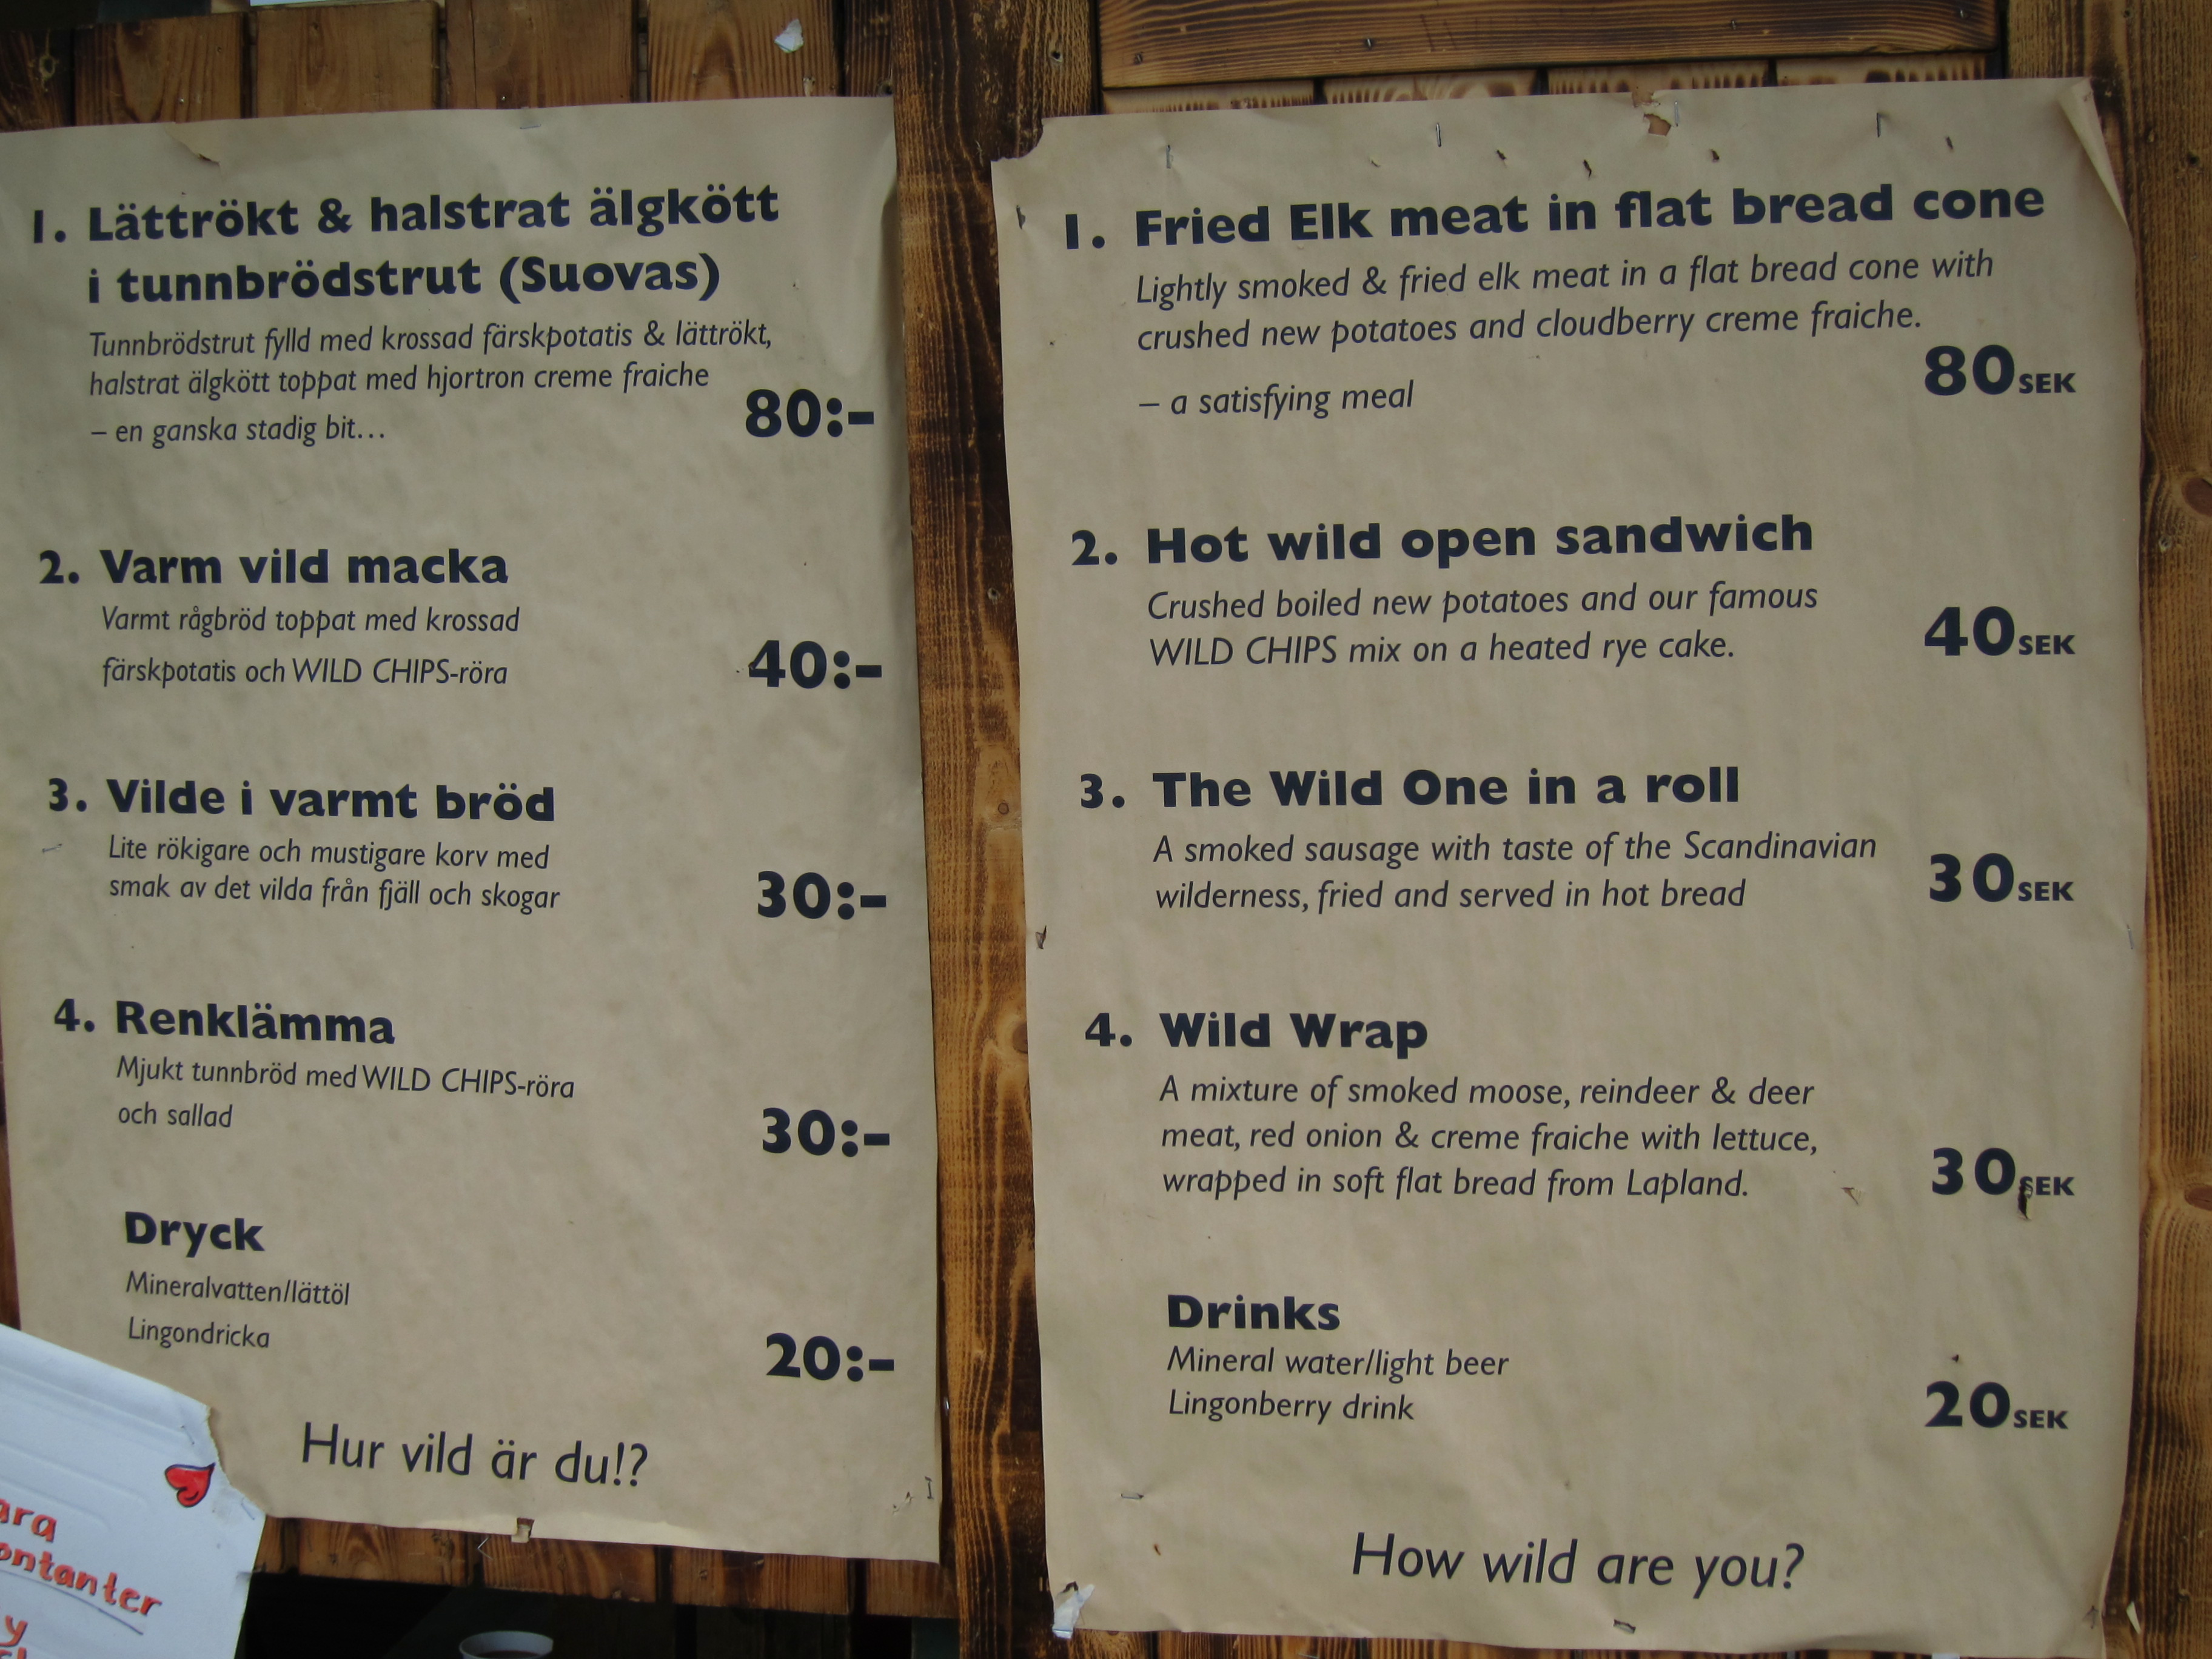 1. Lättrökt & halstrat älgkött
i tunnbrödstrut (Suovas)
Tunnbrödstrut fylld med krossad färskpotatis & lättrökt,
halstrat älgkött toppat med hjortron creme fraiche
– en ganska stadig bit...
80:-
2. Varm vild macka
Varmt rågbröd toppat med krossad
färskpotatis och WILD CHIPS-röra
40:-
3. Vilde i varmt bröd
Lite rökigare och mustigare korv med
smak av det vilda från fjäll och skogar
30:-
4. Renklämma
Mjukt tunnbröd med WILD CHIPS-röra
och sallad
30:-
Dryck
Mineralvatten/lättöl
Lingondricka
20:-
Hur vild är du!?
1. Fried Elk meat in flat bread cone
Lightly smoked & fried elk meat in a flat bread cone with
crushed new potatoes and cloudberry creme fraiche.
– a satisfying meal
80 SEK
2. Hot wild open sandwich
Crushed boiled new potatoes and our famous
WILD CHIPS mix on a heated rye cake.
40 SEK
3. The Wild One in a roll
A smoked sausage with taste of the Scandinavian
wilderness, fried and served in hot bread
30 SEK
4. Wild Wrap
A mixture of smoked moose, reindeer & deer
meat, red onion & creme fraiche with lettuce,
wrapped in soft flat bread from Lapland.
30 SEK
Drinks
Mineral water/light beer
Lingonberry drink
20 SEK
How wild are you?